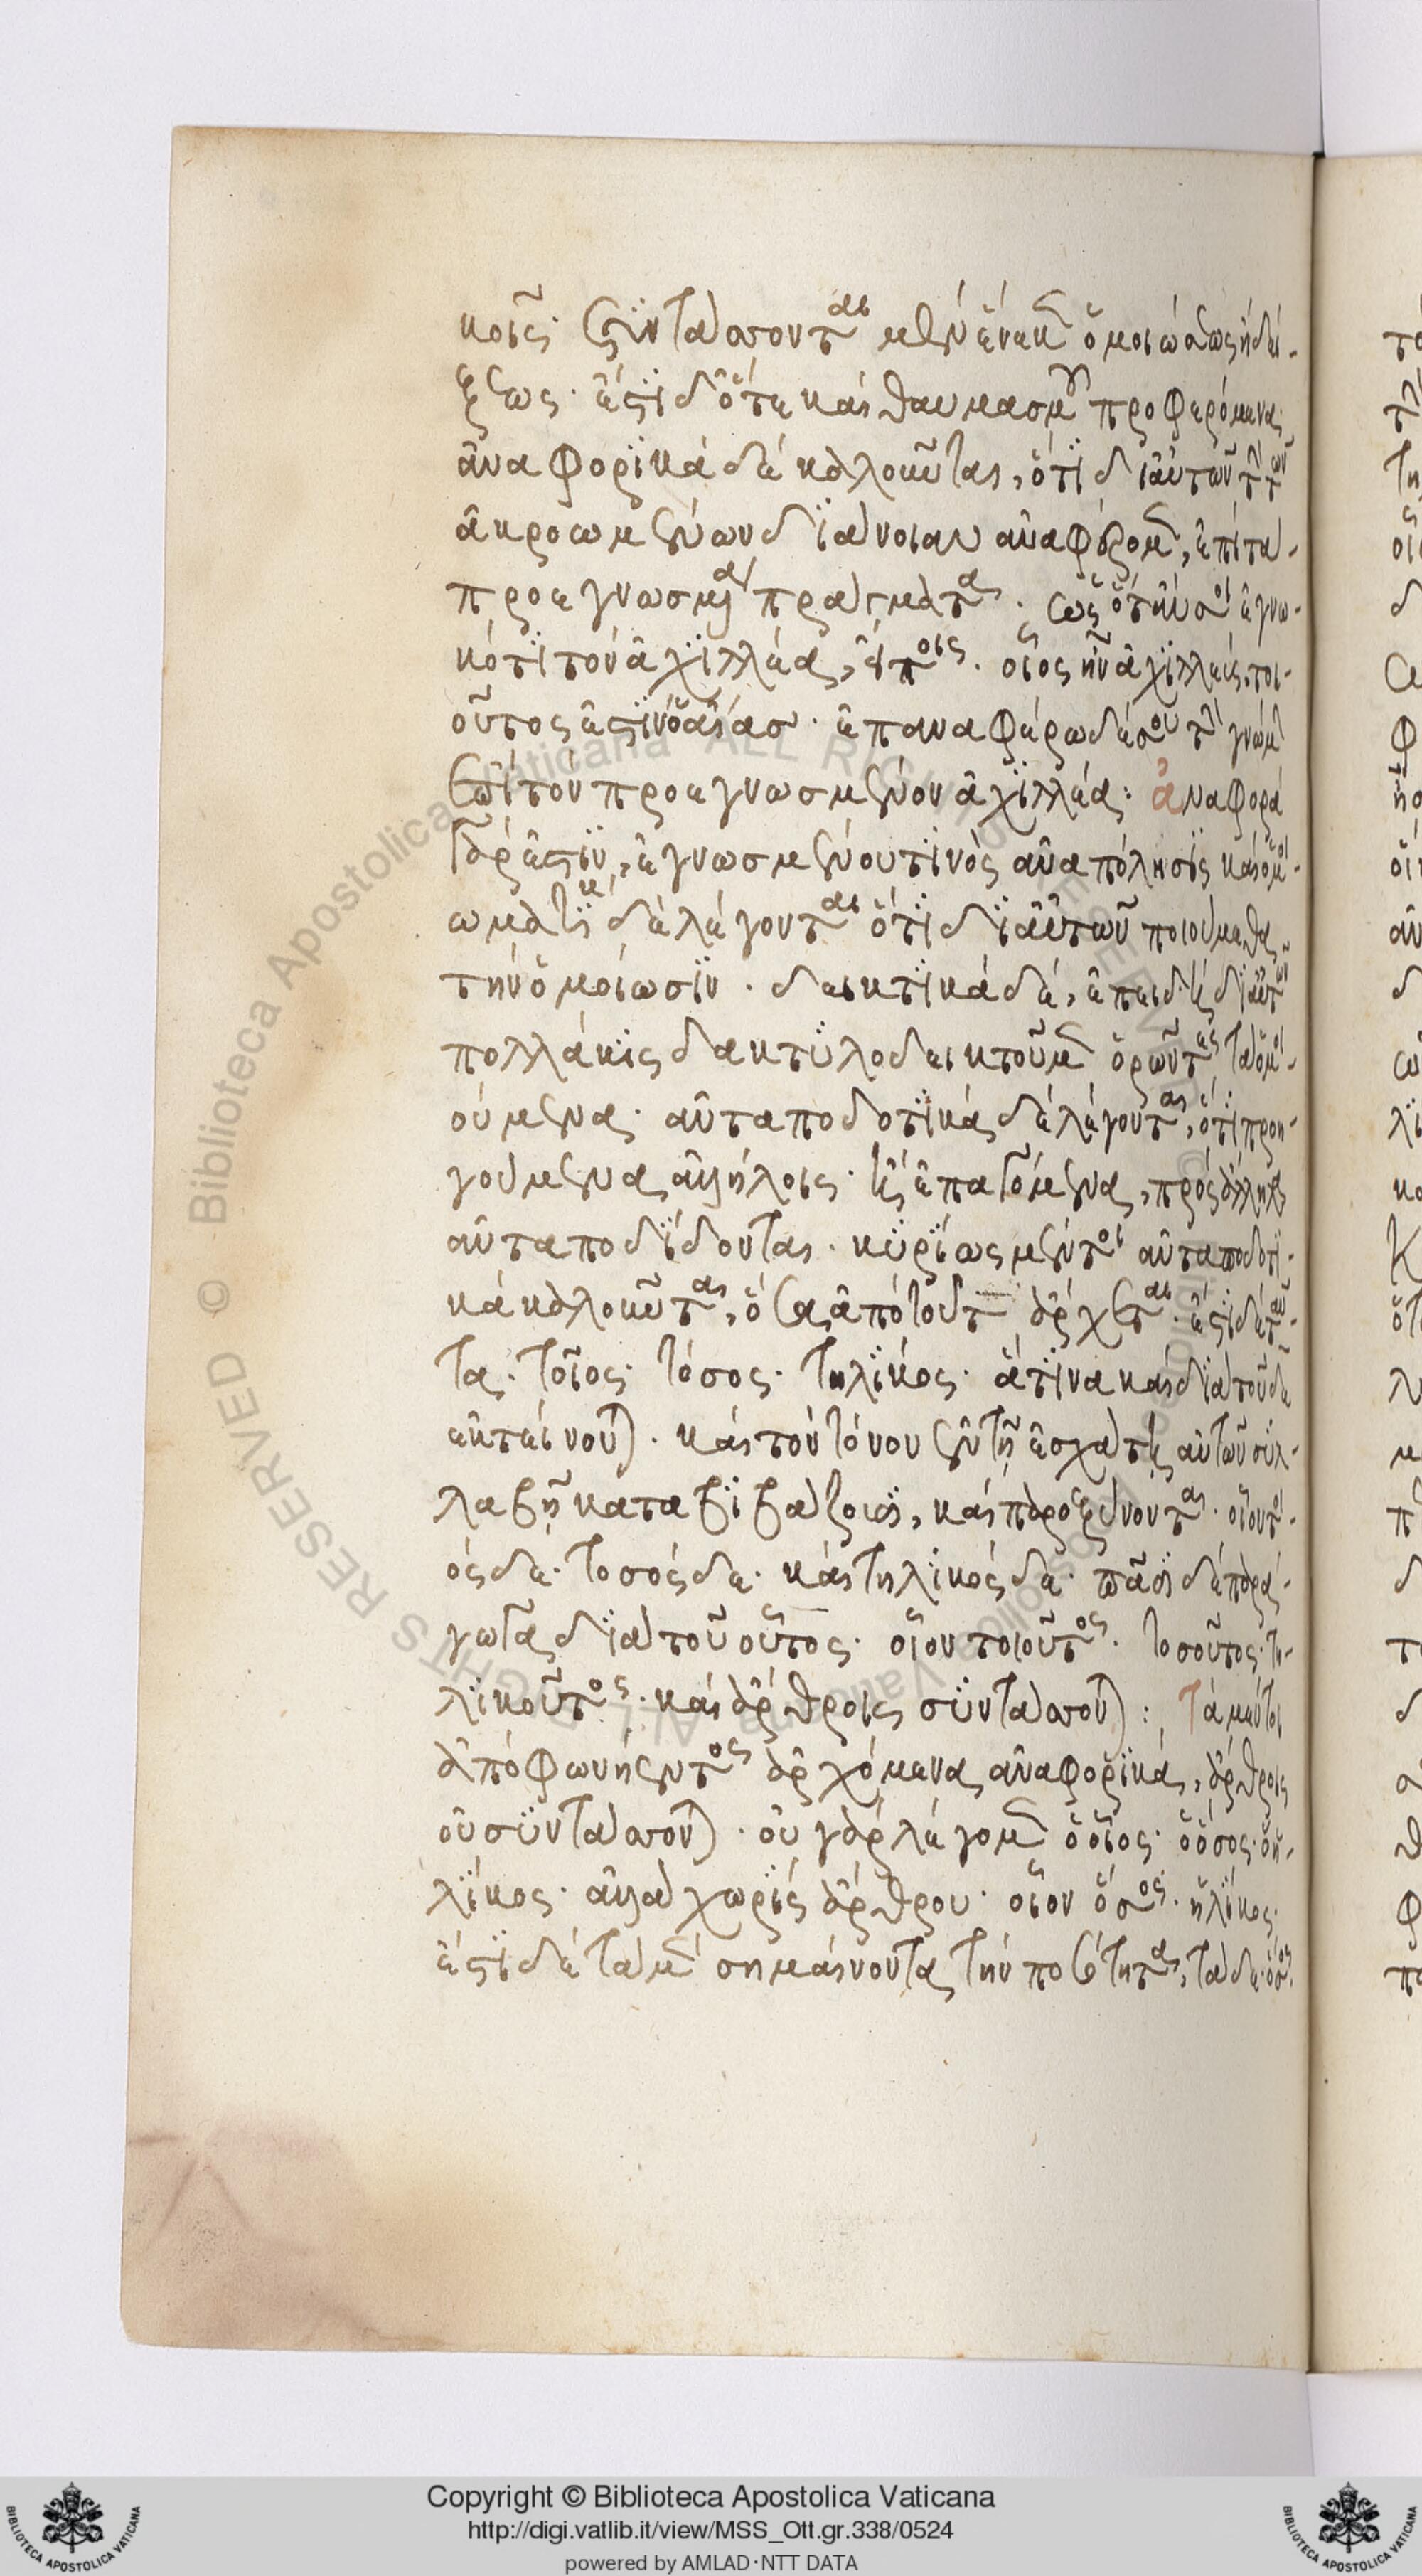 κοῖς· συντάσσονται μὲν ἕνεκεν ὁμοιώσεως ἢ δεί-
ξεως· ἔστι δ' ὅτε καὶ θαυμασμοῦ προφερόμενα·
ἀναφορικὰ δὲ καλοῦνται, ὅτι δι' αὐτῶν τὴν τῶν
ἀκροωμένων διάνοιαν ἀναφέρομεν, ἐπὶ τὰ
προεγνωσμένα πράγματα· ὡς ὅταν σοι ἐγνω-
κότι τὸν ἀχιλλέα, εἴποις· οἷος ἦν ἀχιλλεὺς, τοι-
οῦτος ἐστὶν ὁ αἴας· ἐπαναφέρω δέ σου τὴν γνώμην
ἐπὶ τὸν προεγνωσμένον ἀχιλλέα: ἀναφορὰ
γάρ ἐστιν, ἐγνωσμένου τινὸς ἀναπόλησις καὶ ὁμοι-
ωματικὰ δὲ λέγονται ὅτι δι' αὐτῶν ποιούμεθα
τὴν ὁμοίωσιν· δεικτικὰ δὲ, ἐπειδὴ δι' αὐτῶν
πολλάκις δακτυλοδεικτοῦμεν ὁρῶντες τὰ ὁμοι-
ούμενα· ἀνταποδοτικὰ δὲ λέγονται, ὅτι προη-
γούμενα ἀλλήλοις· καὶ ἐπαγόμενα, πρὸς ἄλληλα
ἀνταποδίδονται· κυρίως μέντοι ἀνταποδοτι-
κὰ καλοῦνται, ὅσα ἀπὸ τοῦ τ ἄρχεται· ἔστι δὲ ταῦ-
τα· τοῖος· τόσος· τηλίκος· ἅτινα καὶ διὰ τοῦ δε
ἐκτείνονται· καὶ τὸν τόνον ἐν τῇ ἐσχάτῃ αὐτῶν συλ-
λαβῇ καταβιβάζουσι, καὶ παροξύνονται· οἷον τοι-
όςδε· τοσόςδε· καὶ τηλικόςδε· πᾶσι δὲ παρά-
γωγα διὰ τοῦ οὗτος· οἷον τοιοῦτος· τοσοῦτος· τη-
λικοῦτος· καὶ ἄρθροις συντάσσονται: Τὰ μέντοι
ἀπὸ φωνήεντος ἀρχόμενα ἀναφορικὰ, ἄρθροις
οὐ συντάσσονται· οὐ γὰρ λέγομεν ὁ οἷος· ὁ ὅσος· ὁ ἡ-
λίκος· ἀλλὰ χωρὶς ἄρθρου· οἷον ὅσος· ἡλίκος·
ἔστι δὲ τὰ μὲν σημαίνοντα τὴν ποσότητα, τὰ δὲ